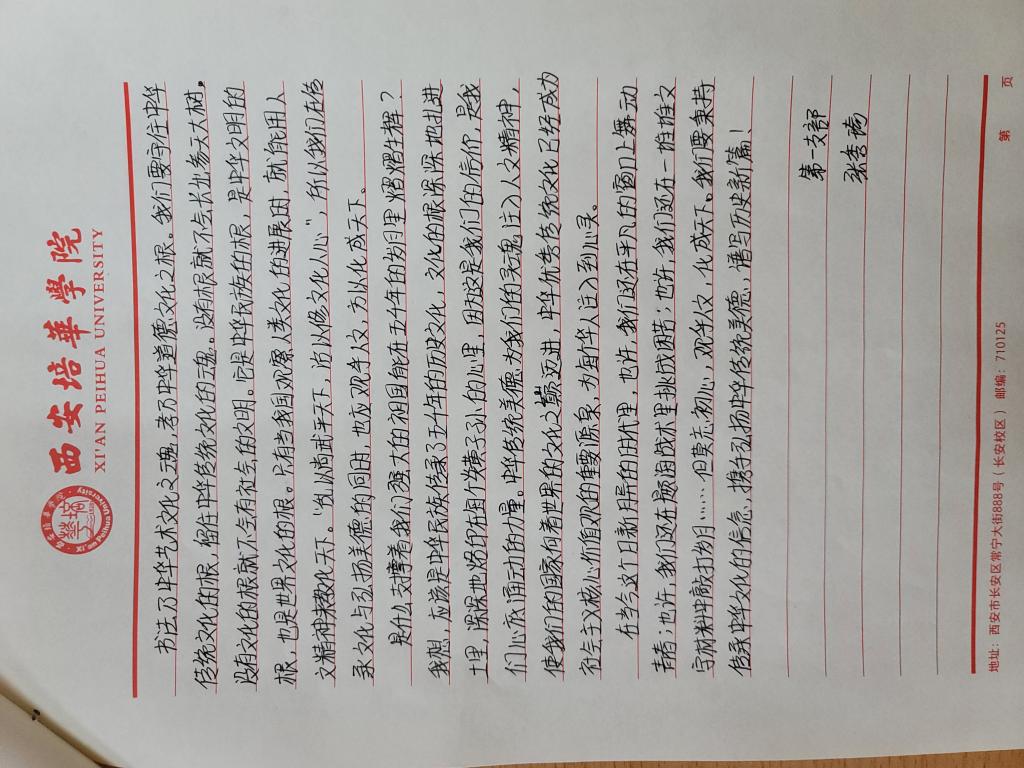 西安培華學院
XI'AN PEIHUA UNIVERSITY
书法乃中华艺术文化之魂，孝乃中华道德文化之根。我们要守住中华
传统文化的根，留住中华传统文化的魂。没有根就不会长出参天大树，
没有文化的根就不会有社会的文明。它是中华民族的根，是中华文明的
根，也是世界文化的根。只有当我国观察人类文化的进展时，就能用人
文精神来教化天下。"岂以消武乎天下，治以修文化人心"，所以我们在传
承文化与弘扬美德的同时，也应观乎人文，方以化成天下。
是什么支撑着我们强大的祖国能在五千年的岁月里熠熠生辉？
我想，应该是中华民族传承了千年的历史文化，文化的根深深地扎进
土里，深深地烙印在每个炎黄子孙的心里，因为这是我们的信仰，是我
们心底涌动的力量。中华传统美德为我们的灵魂注入人文精神，
使我们的国家向着世界的文化之巅迈进，中华优秀传统文化已经成为
社会主义核心价值观的重要源泉，为国人注入到心灵。
在当今这个日新月异的时代里，也许，我们还在平凡的窗口上舞动
青春；也许，我们还在题海战术里挑战困苦；也许，我们还在一堆堆文
字材料中敲打岁月……但莫忘初心，观乎人文，化成天下。我们要秉持
传承中华文化的信念，携手弘扬中华传统美德，谱写历史新篇！
第一支部
地址：西安市长安区常宁大街888号（长安校区） 邮编：710125
第 页